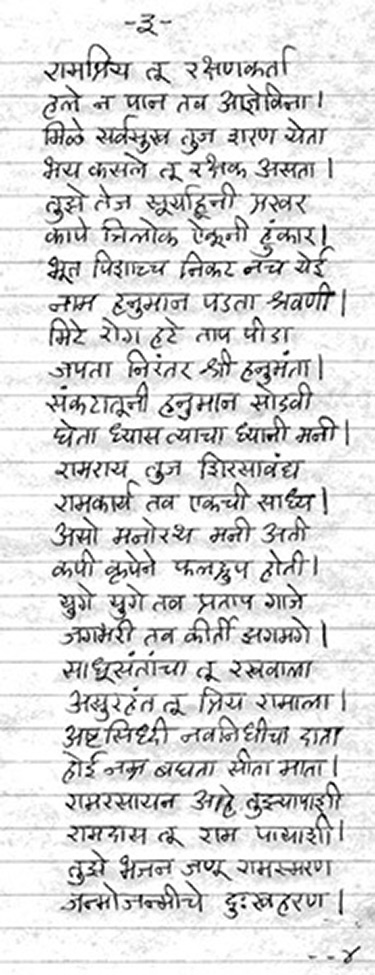 -३-
रामप्रिय तू रक्षणकर्ता
हले न पान तव आज्ञेविना।
मिळे सर्वसुख तुज शरण येता
भय कसले तू रक्षक असता।
तुझे तेज सूर्याहूनी प्रखर
कापे त्रिलोक ऐकूनी हुंकार।
भूत पिशाच्च निकट नच येई
नाम हनुमान पडता श्रवणी।
मिटे रोग हटे ताप पीडा
जपता निरंतर श्री हनुमंता।
संकटातूनी हनुमान सोडवी
घेता ध्यास त्याचा ध्यानी मनी।
रामराय तुज शिरसावंद्य
रामकार्य तव एकची साध्य।
असो मनोरथ मनी अती
कपी कृपेने फलद्रुप होती।
युगे युगे तव प्रताप गाजे
जगभरी तव कीर्ती झगमगे।
साधूसंतांचा तू रखवाला
असुरहंत तू प्रिय रामाला।
अष्टसिध्दी नवनिधीचा दाता
होई नम्र बघता सीता माता।
रामरसायन आहे तुझ्यापाशी
रामदास तू राम पायाशी।
तुझे भजन जणू रामस्मरण
जन्मोजन्मीचे दुःखहरण।
--४